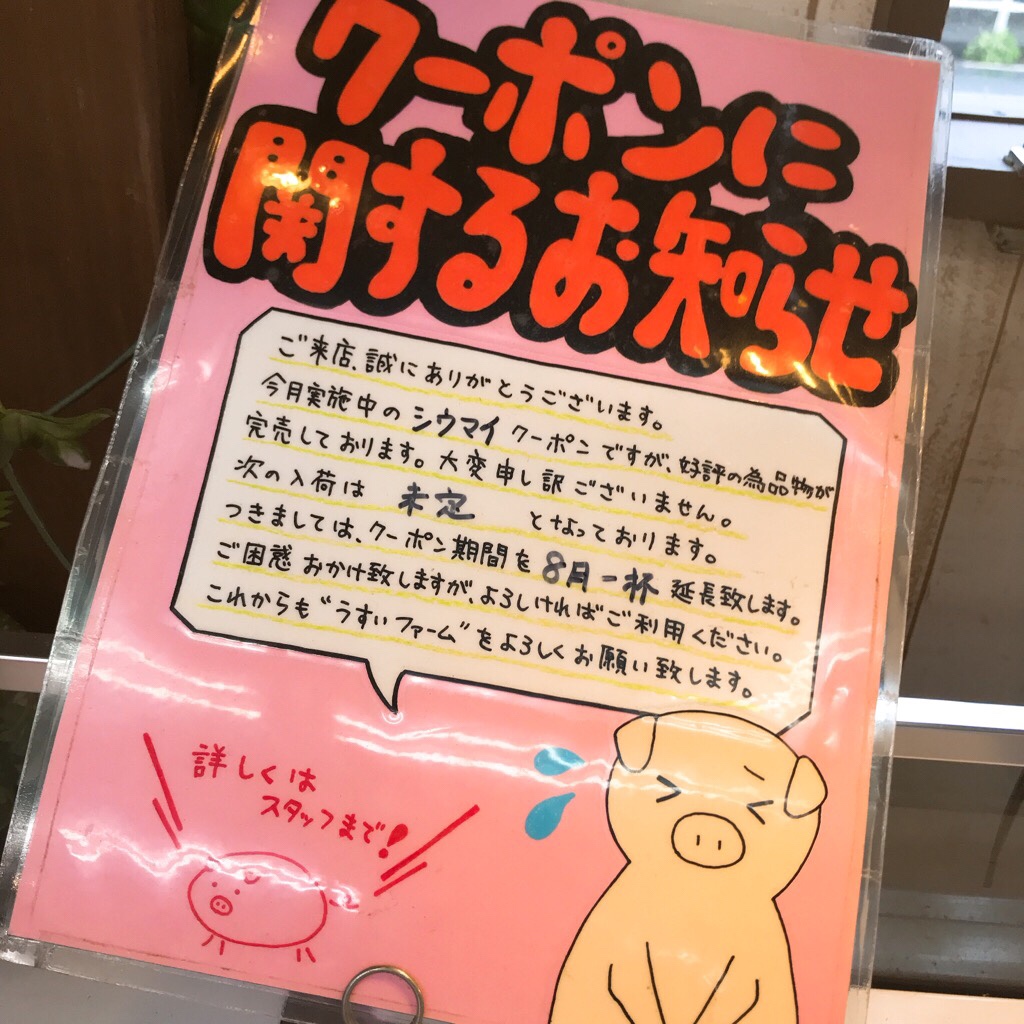 クーポンに
関するお知らせ
ご来店、誠にありがとうございます。
今月実施中のシウマイクーポンですが、好評の為品物が
完売しております。大変申し訳ございません。
次の入荷は 未定 となっております。
つきましては、クーポン期間を 8月一杯 延長致します。
ご困惑おかけ致しますが、よろしければご利用ください。
これからも"うすいファーム"をよろしくお願い致します。
詳しくは
スタッフまで!